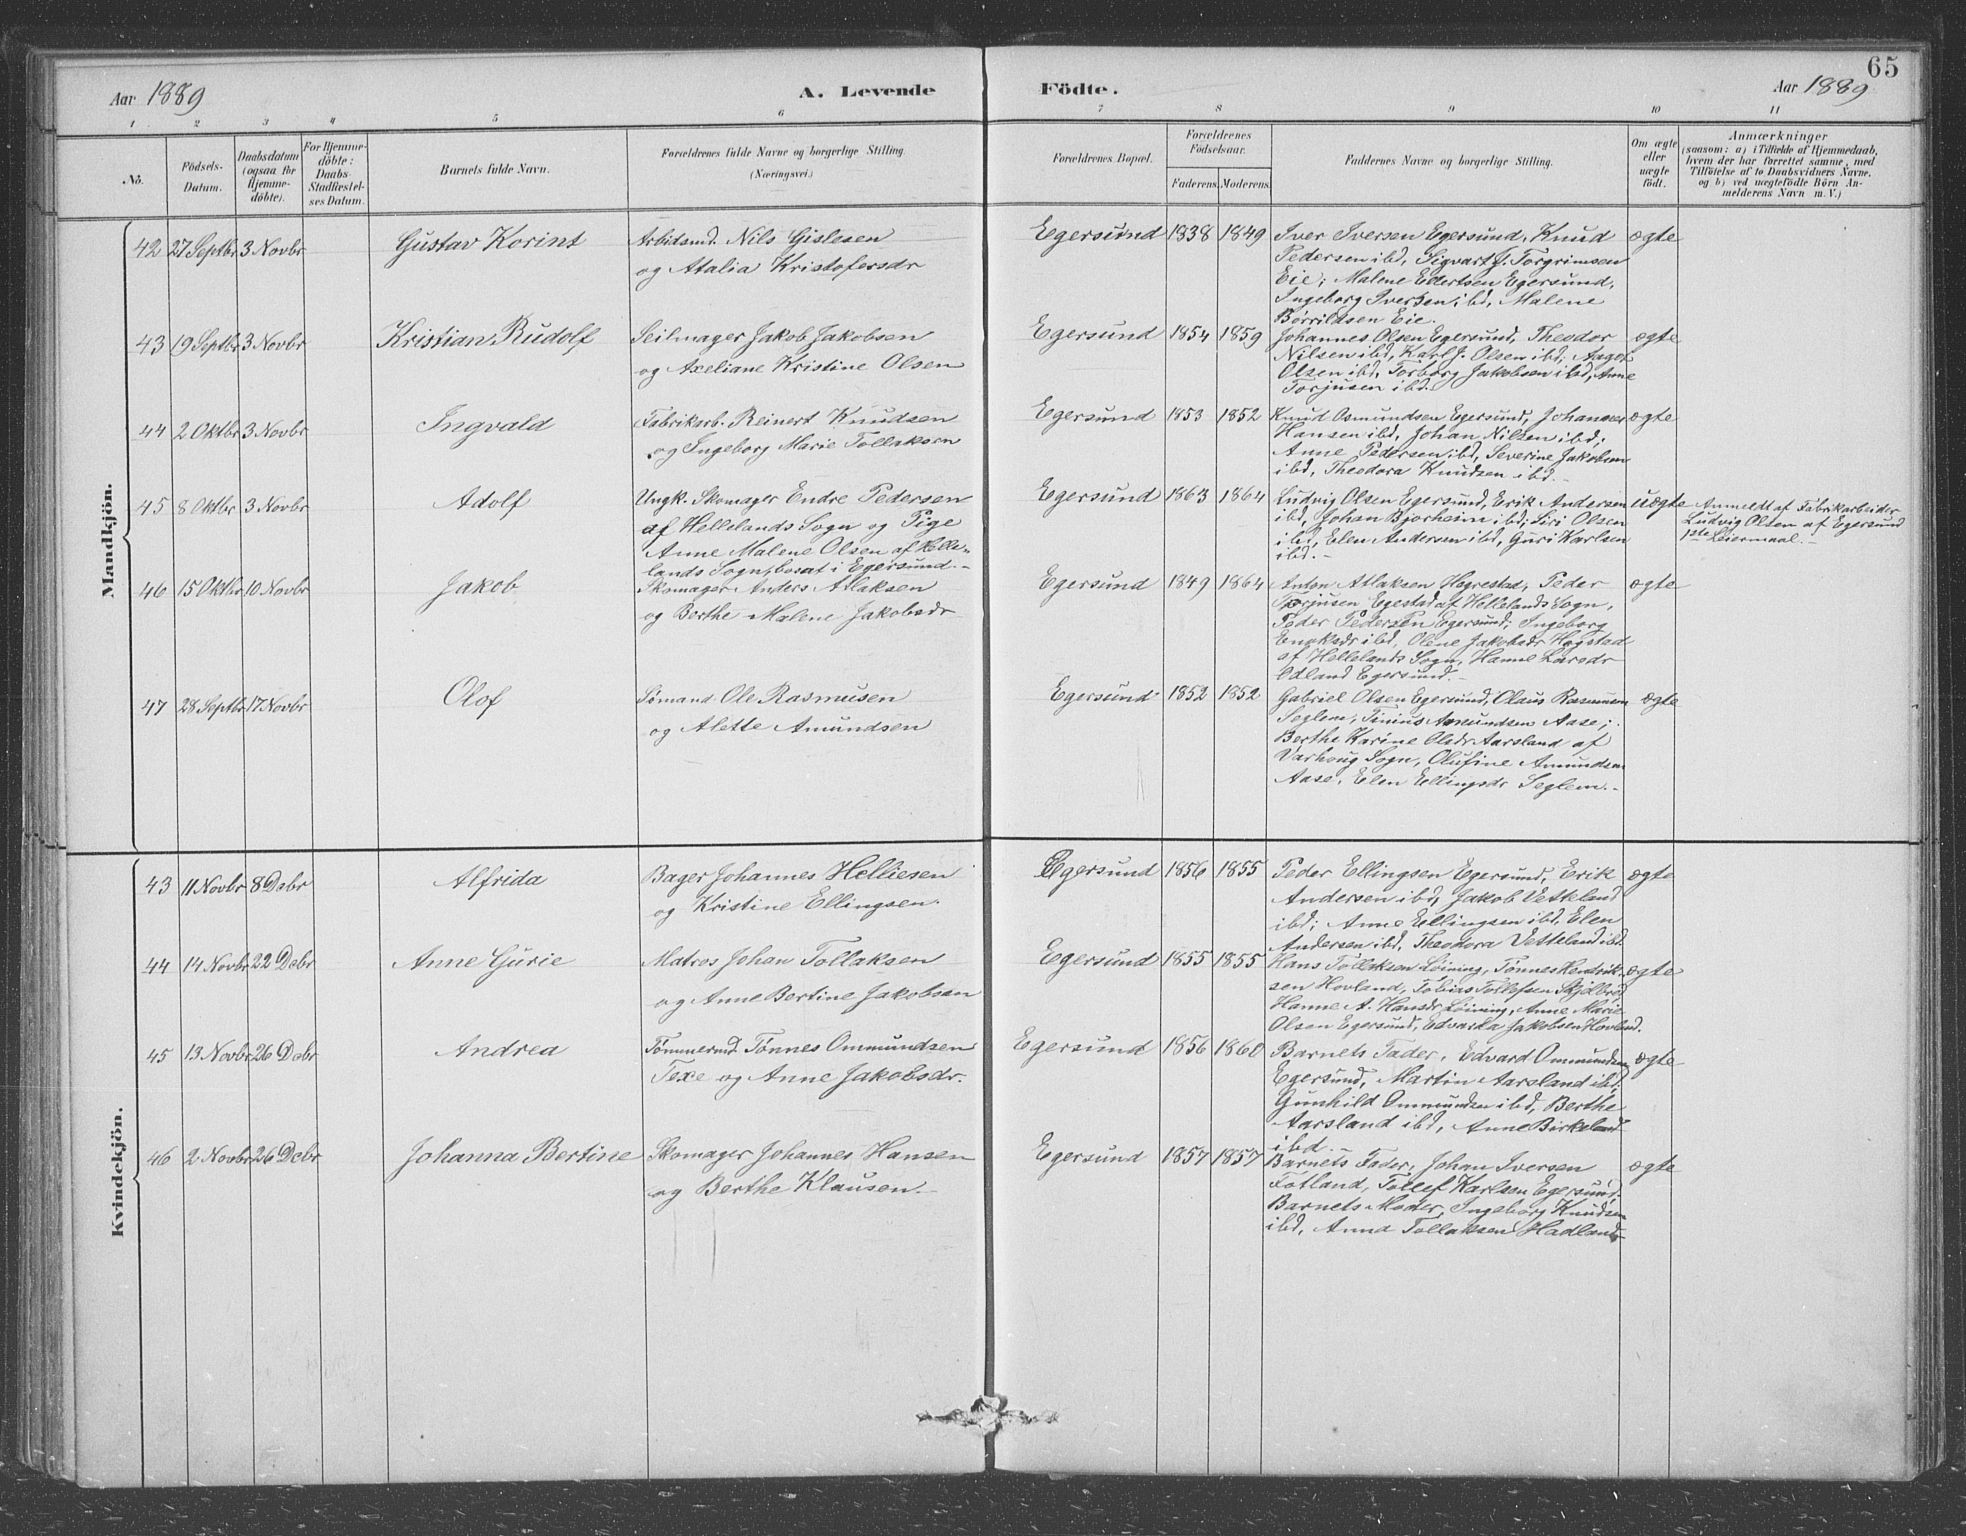 65
Aar 1889
A. Levende
Födte.
Aar 1889
1 2 3 4 5 6 7 8 9 10 11
No.
Födsels-
Datum.
Daabsdatum
(ogsaa for
Hjemme-
döbte).
For Hjemme-
döbte:
Daabs-
Stadfæstel-
ses Datum.
Barnets fulde Navn.
Forældrenes fulde Navne og borgerlige Stilling.
(Næringsvei.)
Forældrenes Bopæl.
Forældrenes
Födselsaar.
Faderens. Moderens.
Faddernes Navne og borgerlige Stilling.
Om ægte
eller
uægte
födt.
Anmærkninger
(saasom: a) i Tilfælde af Hjemmedaab,
hvem der har forrettet samme, med
Tilföielse af to Daabsvidners Navne,
og b) ved uægtefödte Börn An-
melderens Navn m. V.)
Mandkjön.
42 27 Septbr 3 Novbr Gustav Korint
Arbdsmd. Nils Gislesen
og Atalia Kristofersdr
Egersund 1838 1849
Iver Iversen Egersund, Knud
Pedersen ibd, Sigvart J. Torgrimsen
Eie; Malene Edertsen Egersund,
Ingeborg Iversen ibd, Malene
Börrildsen Eie.
ægte
43 19 Septbr 3 Novbr Kristian Rudolf
Seilmager Jakob Jakobsen
og Axeliane Kristine Olsen
Egersund 1854 1859
Johannes Olsen Egersund, Theodor
Nilsen ibd, Karl J. Olsen ibd; Aagot
Olsen ibd, Torborg Jakobsen ibd, Anne
Torjusen ibd.
ægte
44 2 Oktbr 3 Novbr Ingvald
Fabrikarb. Reinert Knudsen
og Ingeborg Marie Tollaksen
Egersund 1853 1852
Knud Osmundsen Egersund, Johannes
Hansen ibd, Johan Nilsen ibd;
Anne Pedersen ibd, Severine Jakobsen
ibd, Theodora Knudsen ibd.
ægte
45 8 Oktbr 3 Novbr Adolf
Ungk. Skomager Endre Pedersen
af Hellelands Sogn og Pige
Anne Malene Olsen af Helle-
lands Sogn, bosat i Egersund.-
Egersund 1863 1864
Ludvig Olsen Egersund, Erik Andersen
ibd, Johan Bjorheim ibd; Siri Olsen
ibd, Elen Andersen ibd, Guri Karlsen
ibd.-
uægte
Anmeldt af Fabrikarbeider
Ludvig Olsen af Egersund
1ste Leiermaal.-
46 15 Oktbr 10 Novbr Jakob
Skomager Anders Atlaksen
og Berthe Malene Jakobsdr
Egersund 1849 1864
Anton Atlaksen Hegrestad, Peder
Torjusen Egestad af Hellelands Sogn,
Peder Pedersen Egersund; Ingeborg
Enoksdr ibd, Olene Jakobsdr Hegstad
af Hellelands Sogn, Hanne Larsdr
Odland Egersund.-
ægte
47 28 Septbr 17 Novbr Olof
Sömand Ole Rasmusen
og Alette Amundsen
Egersund 1852 1852
Gabriel Olsen Egersund, Olaus Rasmusen
Seglem, Tinius Amundsen Aase;
Berthe Karine Olsdr Aarsland af
Varhoug Sogn, Olufine Amundsen
Aase, Elen Ellingsdr Seglem.-
ægte
Kvindekjön.
43 11 Novbr 8 Debr Alfrida
Bager Johannes Helliesen
og Kristine Ellingsen.
Egersund 1856 1855
Peder Ellingsen Egersund, Erik
Andersen ibd, Jakob Vetteland
ibd; Anne Ellingsen ibd, Elen
Andersen ibd, Theodora Vetteland ibd.
ægte
44 14 Novbr 22 Debr Anne Gurie
Matros Johan Tollaksen
og Anne Bertine Jakobsen
Egersund 1855 1855
Hans Tollaksen Löining, Tönnes Hendrik-
sen Hovland, Tobias Tollefsen Skjelbred,
Hanne A. Hansdr Löining, Anne Marie
Olsen Egersund, Edvarka Jakobsen Hovland.
ægte
45 13 Novbr 26 Debr Andrea
Tömmermd. Tönnes Ommundsen
Texe og Anne Jakobsdr.
Egersund 1856 1860
Barnets Fader, Edvard Ommundsen
Egersund, Martin Aarsland ibd,
Gunhild Ommundsen ibd, Berthe
Aarsland ibd, Anne Birkeland
ibd.-
ægte
46 2 Novbr 26 Debr Johanna Bertine
Skomager Johannes Hansen
og Berthe Klausen.-
Egersund 1857 1857
Barnets Fader, Johan Iversen
Fotland, Tollef Karlsen Egersund,
Barnets Moder, Ingeborg Knudsen
ibd, Anna Tollaksen Hadland
ægte